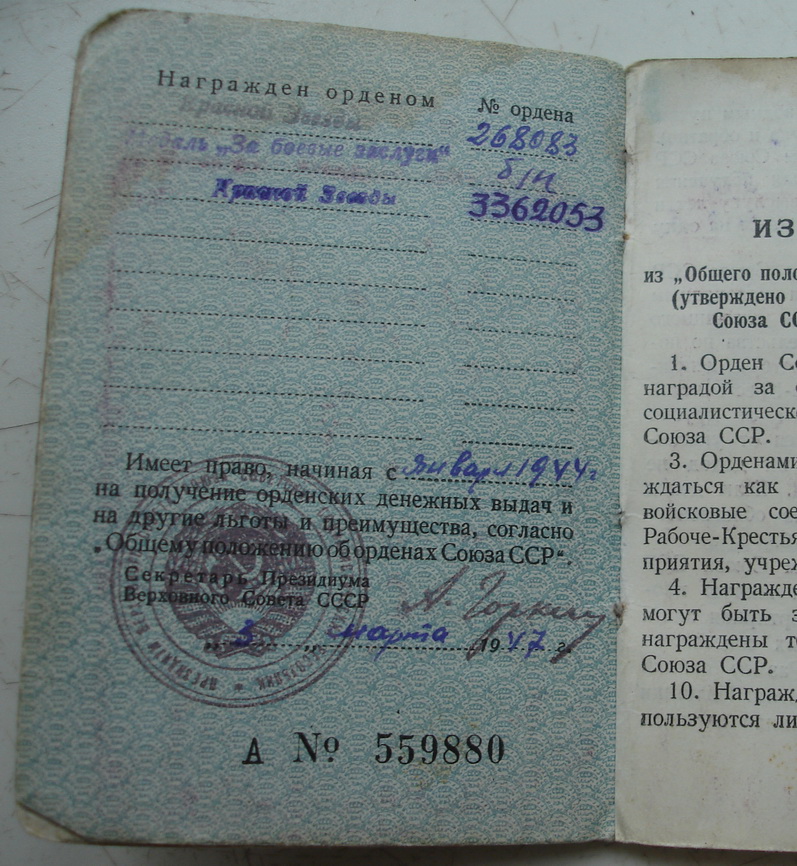 Награжден орденом
№ ордена
Красной Звезды
268083
Медаль „За боевые заслуги“
б/н
Красной Звезды
3362053
Имеет право, начиная с января 1944 г
на получение орденских денежных выдач и
на другие льготы и преимущества, согласно
„Общему положению об орденах Союза ССР“.
Секретарь Президиума
Верховного Совета СССР
А. Горкин
„3 „ марта 1947 г.
А № 559880
ИЗ
из „Общего поло
(утверждено
Союза СС
1. Орден Со
наградой за
социалистическо
Союза ССР.
3. Орденами
ждаться как
войсковые сое
Рабоче-Крестья
приятия, учреж
4. Награжде
могут быть з
награждены т
Союза ССР.
10. Награжд
пользуются ли